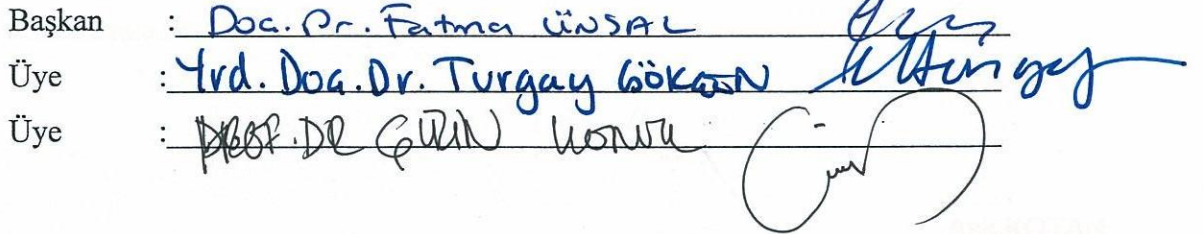 Başkan : Doç. Dr. Fatma ÜNSAL
Üye : Yrd. Doç. Dr. Turgay GÖKGÖN
Üye : PROF. DR GÜZİN KONUK